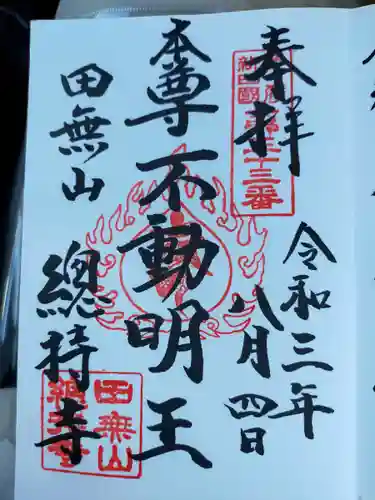 奉拝
令和三年
八月四日
本尊不動明王
田無山
總持寺
三十三番
田無山